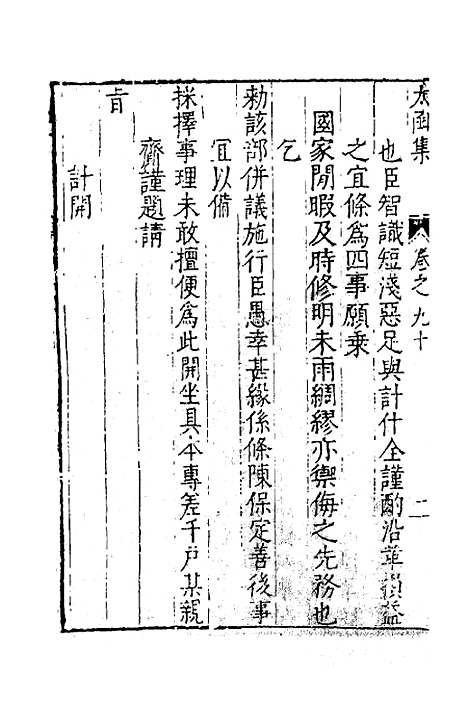 太函集 卷之九十 二
也臣智識短淺惡足與計什全謹酌沿革損益
之宜條爲四事願乗
國家閒暇及時修明未雨綢繆亦禦侮之先務也
乞
勑該部併議施行臣愚幸甚緣係條陳保定善後事
宜以備
採擇事理未敢擅便爲此開坐具本專差千户某親
齎謹題請
旨
計開